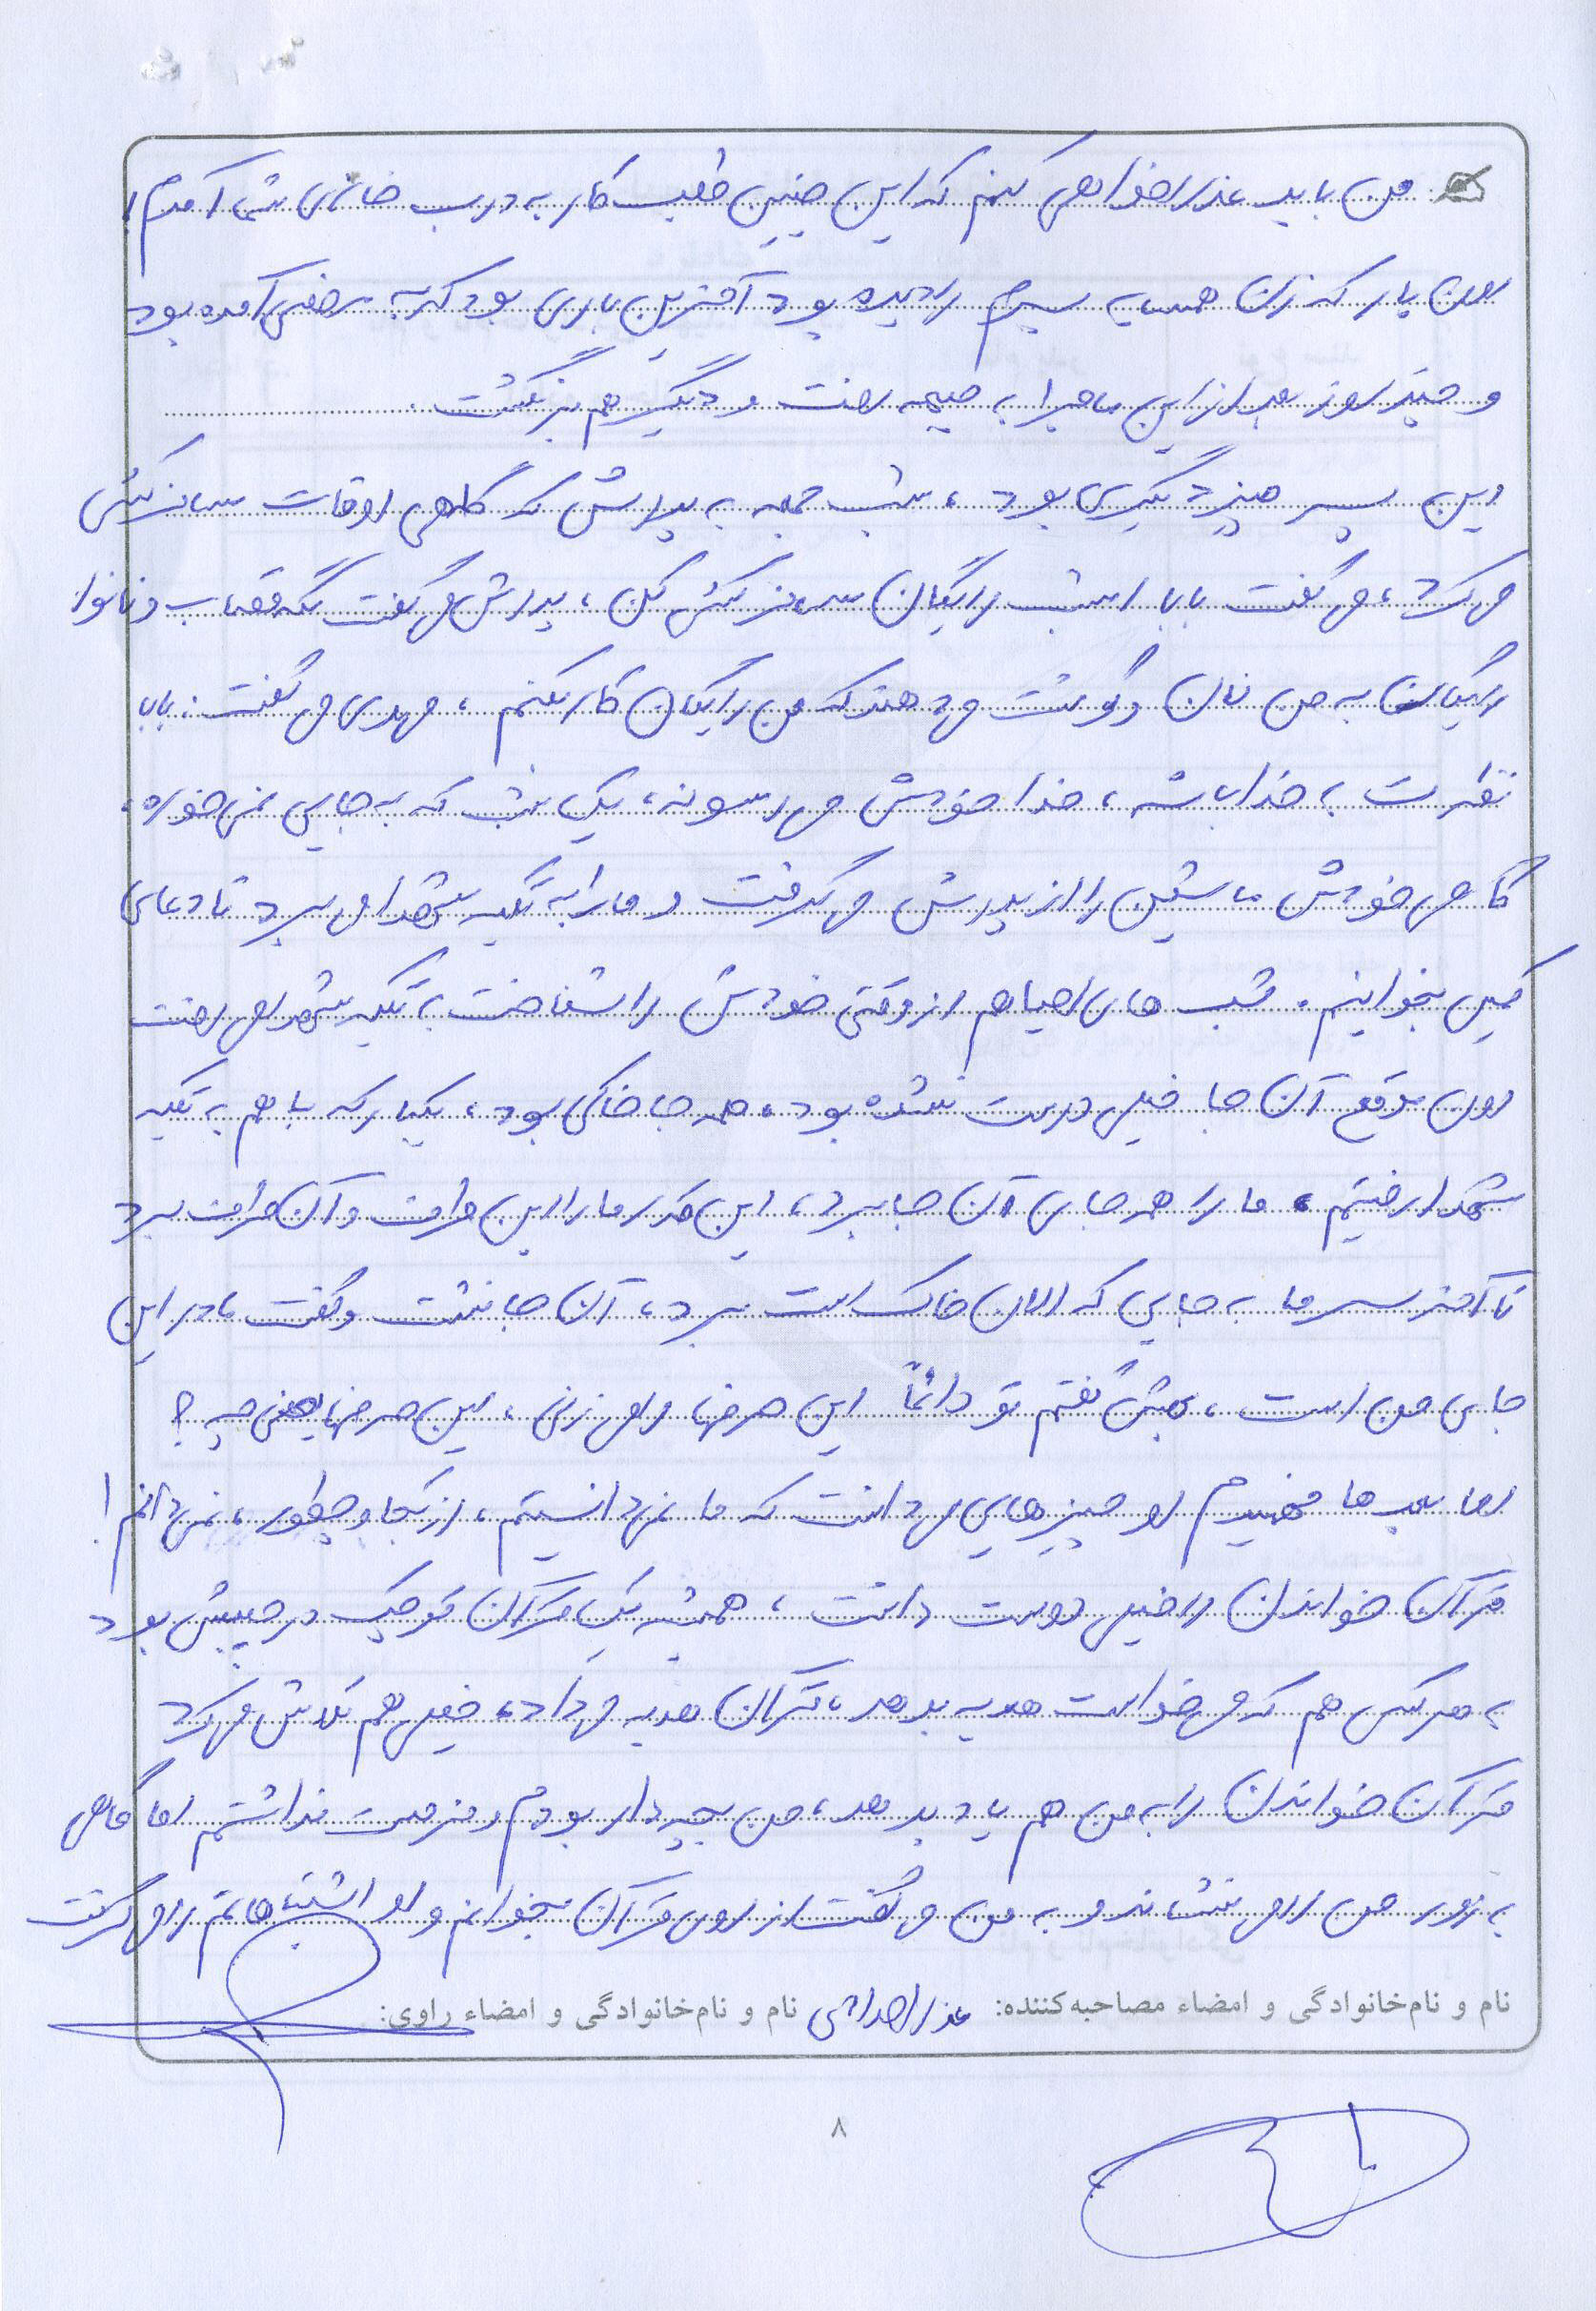 من باید عذرخواهی کنم که این چنین طلب کار به درب خانه‌ی شما آمدم!
اون بار که زن همسایه پسرم را دیده بود آخرین باری بود که به مرخصی آمده بود
و چند روز بعد از این ماجرا به جبهه رفت و دیگر هم برنگشت.
این پسر چیز دیگری بود، شب جمعه به پدرش که گاهی اوقات مسافرکشی
می‌کرد، می‌گفت بابا امشب رایگان مسافرکشی کن، پدرش می‌گفت مگه قصاب و نانوا
رایگان به من نان و گوشت می‌دهند که من رایگان کار بکنم، مهدی می‌گفت: بابا
نظرت به خدا باشه، خدا خودش می‌رسونه، یک شب که به جایی نمی‌خوره،
گاهی خودش ماشین را از پدرش می‌گرفت و ما را به تکیه شهدا می‌برد تا دعای
کمیل بخوانیم. شب های احیا هم از وقتی خودش را شناخت به تکیه شهدا می‌رفت
اون موقع آن جا خیلی درست نشده بود، همه جا خاکی بود، یکبار که با هم به تکیه
شهدا رفتیم، ما را همه جای آن جا برد، این قدر ما را این طرف و آن طرف برد
تا آخر سر ما به جایی که الان خاک است برد، آن جا نشست و گفت مادر این
جای من است، بهش گفتم تو دائماً این حرفها را می زنی، این حرفها یعنی چه؟
اما بعدها فهمیدم او چیزهایی می‌دانست که ما نمی‌دانستیم، از کجا و چطور، نمی‌دانم!
قرآن خواندن را خیلی دوست داشت، همیشه یک قرآن کوچک در جیبش بود
به هر کس هم که می‌خواست هدیه بدهد، قرآن هدیه می‌داد، خیلی هم تلاش می‌کرد
قرآن خواندن را به من هم یاد بدهد، من بچه دار بودم و فرصت نداشتم اما گاهی
به زور من را می نشاند و به من می‌گفت از روی قرآن بخوانم و او اشتباهاتم را می گرفت
نام و نام‌خانوادگی و امضاء مصاحبه‌کننده: نام و نام‌خانوادگی و امضاء راوی:
۸